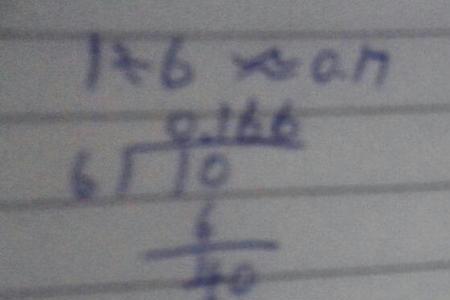 1÷6 ≈ 0.17
0.166
6 10
6
40